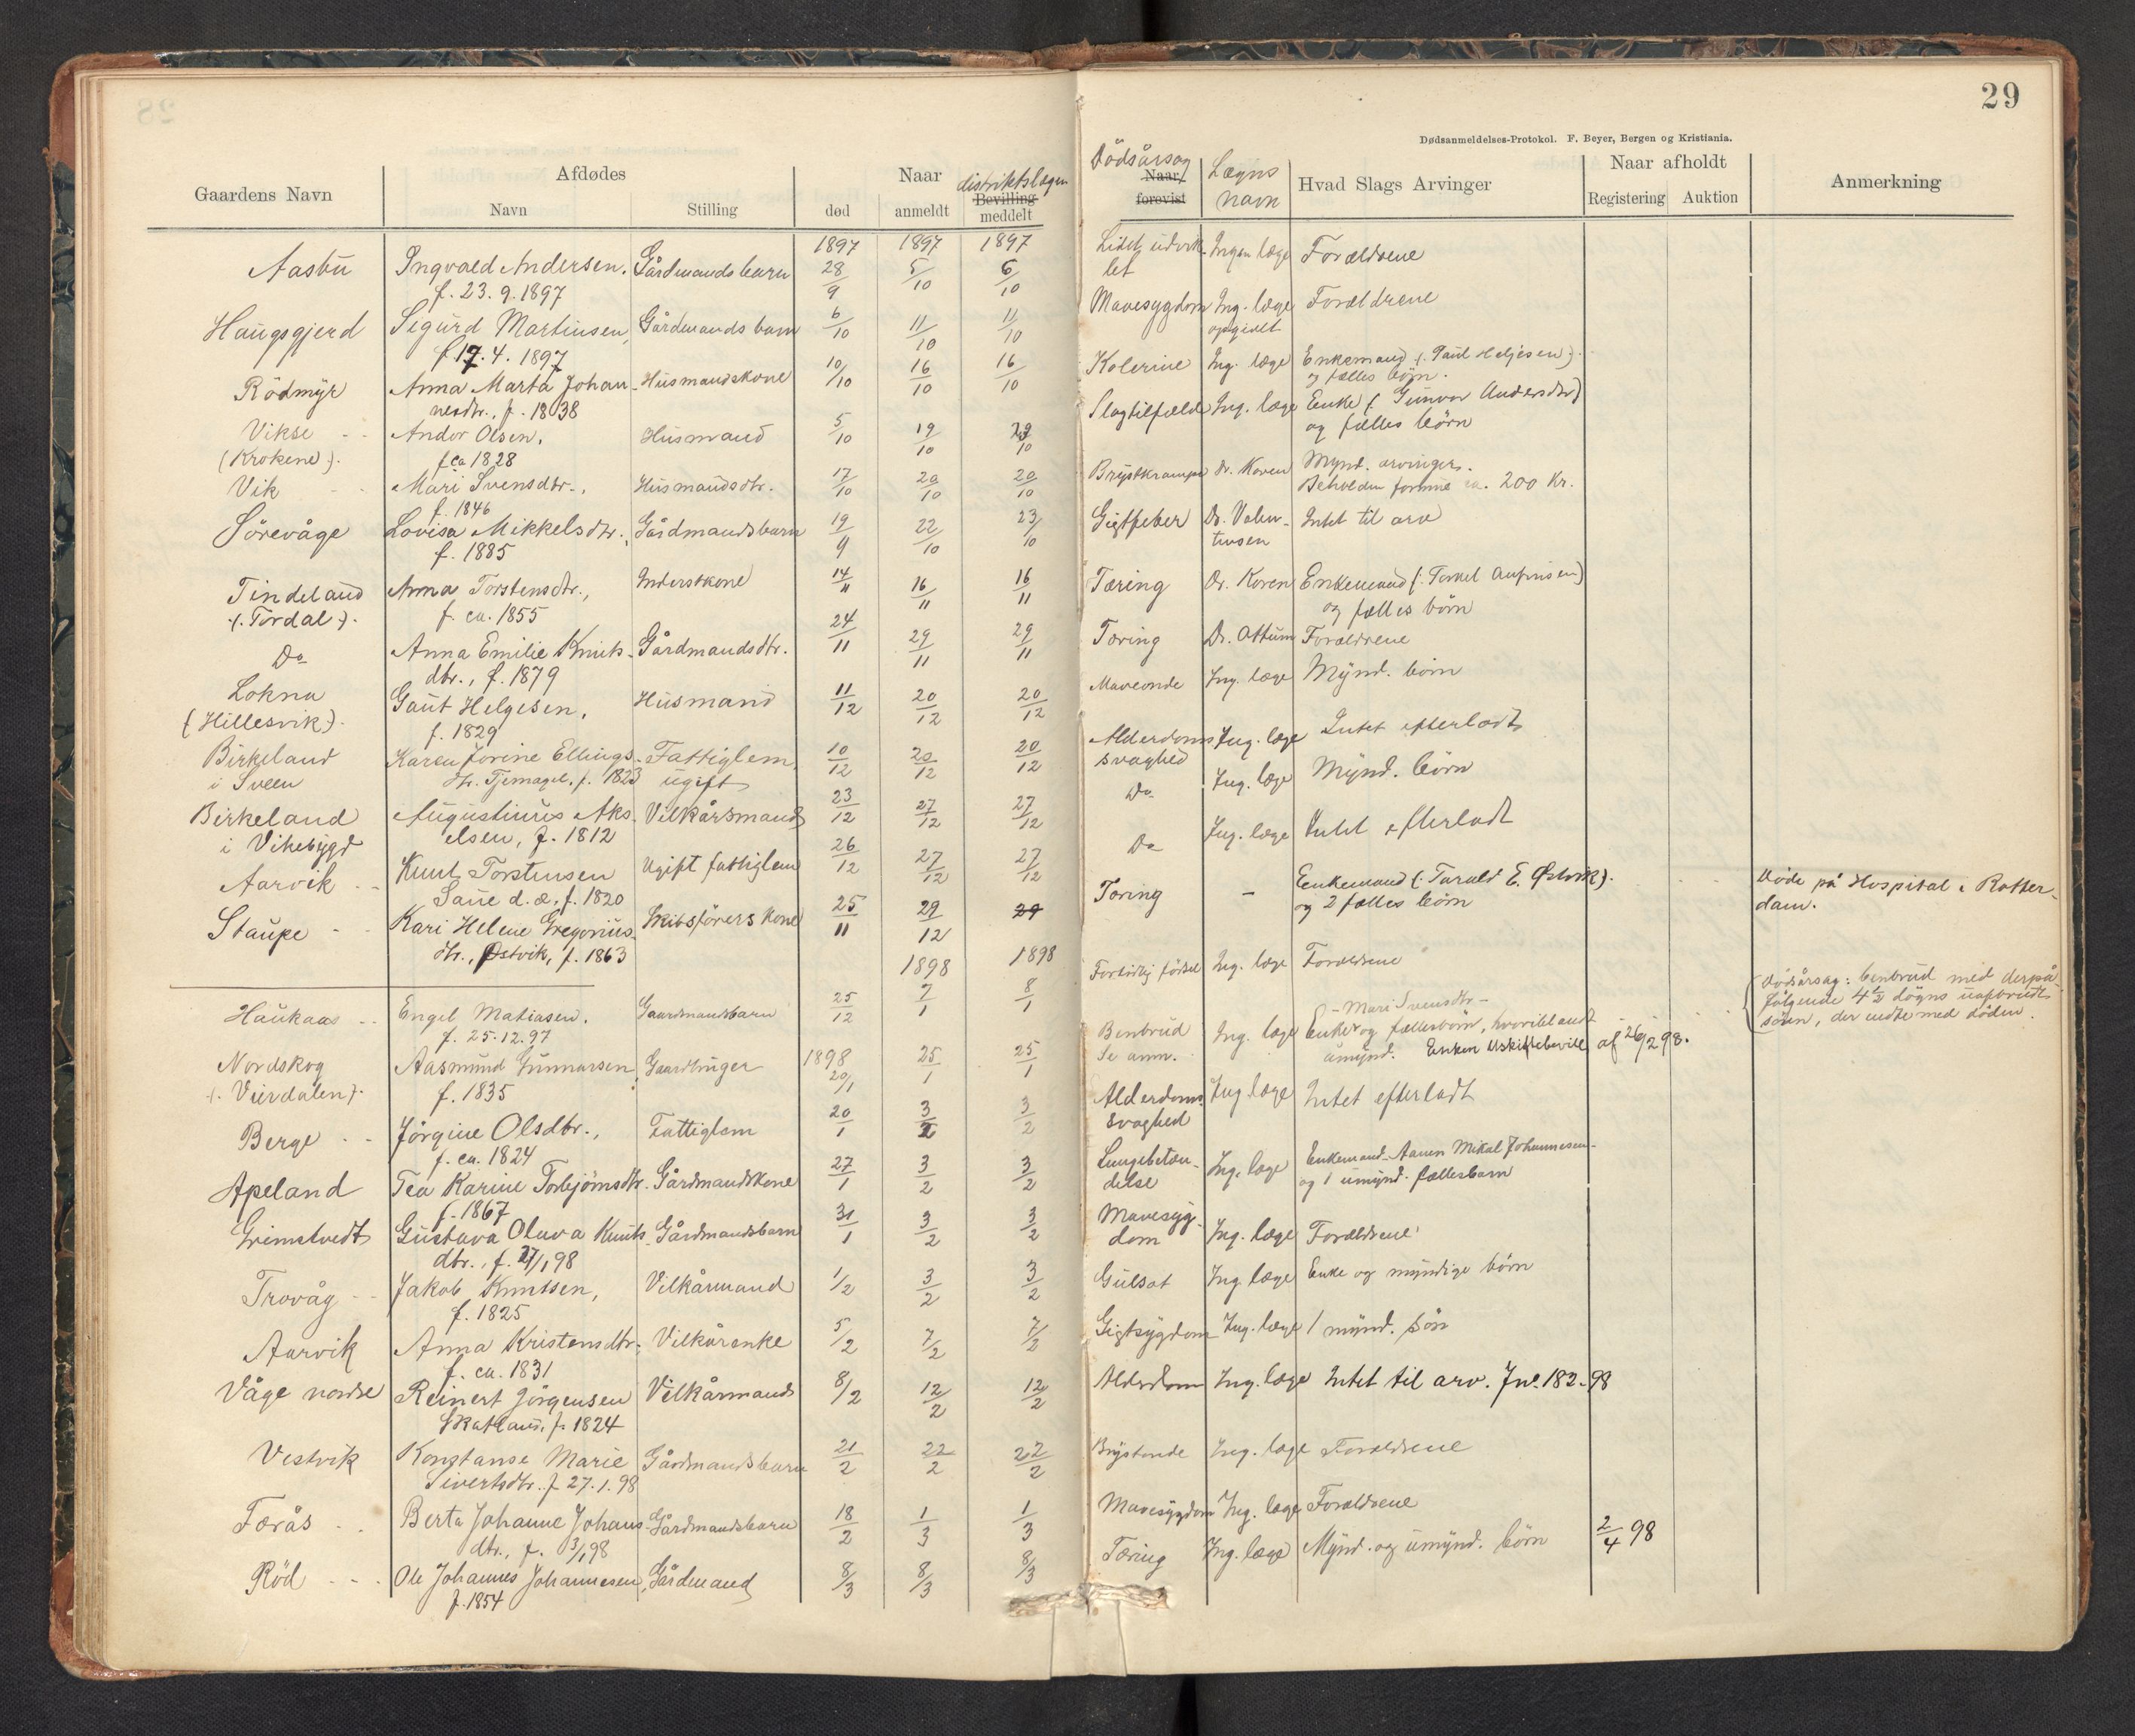 29
Dødsanmeldelses-Protokol. F. Beyer, Bergen og Kristiania.
Gaardens Navn
Afdødes
Navn
Stilling
Naar
død
anmeldt
distriktslægen
Bevilling
meddelt
Dödsårsag
Naar
forevist
Lægens
navn
Hvad Slags Arvinger
Naar afholdt
Registering Auktion
Anmerkning
1897 1897 1897
Aasbu Ingvald Andersen. Gårdmandsbarn 28/9 5/10 6/10 Lidet udvik- Ingen læge Forældrene
f. 23.9.1897 let
Haugsgjerd Sigurd Martinsen, Gårdmandsbarn 6/10 11/10 11/10 Mavesygdom Ing. læge Forældrene
f. 17.4.1897 opgivet
Rödmyr Anna Marta Johan- Husmandskone 10/10 16/10 16/10 Kolerine Ing. læge Enkemand (. Paul Heljesen).
nesdtr., f. 1838 og fælles börn.
Vikse Andor Olsen, Husmand 5/10 19/10 29/10 Slagtilfælde Ing. læge Enke (. Gunvor Andersdtr)
(Krokene). f ca 1828 og fælles börn
Vik Mari Svensdtr., Husmandsdtr. 17/10 20/10 20/10 Brystkrampe Dr. Koren Mynd. arvinger.
f. 1846 Beholden formue ca. 200 Kr.
Sörevåge Lovisa Mikkelsdtr., Gårdmandsbarn 19/9 22/10 23/10 Gigtfeber Dr. Valen- Intet til arv
f. 1885 tinsen
Tindeland Anna Torstensdtr., Inderstkone 14/11 16/11 16/11 Tæring Dr. Koren Enkemand (. Torkel
(. Tordal). f. ca. 1855 og fælles börn
Do Anna Emilie Knuts- Gårdmandsdtr. 24/11 29/11 29/11 Tæring Dr. Attum Forældrene
dtr., f. 1879
Lokna Gaut Helgesen, Husmand 11/12 20/12 20/12 Maveonde Ing. læge Mynd. börn
(Hillesvik). f. 1829
Birkeland Karen Jorine Ellings- Fattiglem, 10/12 20/12 20/12 Alderdoms- Ing. læge Intet efterladt
i Sveen dtr. Tjernagel, f. 1823 ugift svaghed
Birkeland Augustinus Aks- Vilkårsmand 23/12 27/12 27/12 Do Ing. læge Mynd. börn
i Vikebygd elsen, f. 1812
Aarvik Knut Torstensen Ugift fattiglem 26/12 27/12 27/12 Do Ing. læge Intet efterladt
Saue d. æ., f. 1820
Staupe Kari Helene Gregorius- Skibsförers kone 25/11 29/12 29 Tæring – Enkemand (. Tarald E. Østvik). Döde på Hospital i Rotter-
dtr., Østvik, f. 1863 og 2 fælles börn dam.
1898 1898
Haukaas Engel Matiasen. Gaardmandsbarn 25/12 7/1 8/1 Fortidlig födsel Ing. læge Forældrene
f. 25.12.97
Nordskog Aasmund Gunnarsen, Gaardbruger 1898 20/1 25/1 25/1 Benbrud Ing. læge - Mari Svensdtr - Enke og fællesbörn, hvoriblandt
(. Vierdalen). f. 1835 Se anm. umynd. Enken Uskiftebevill. af 26/2 98.
Dödsårsag: benbrud med derpå
fölgende 4½ dögns uafbrudt
sövn, der endte med döden.
Berge Jörgine Olsdtr., Fattiglem 20/1 3/2 3/2 Alderdoms- Ing læge Intet efterladt
f. ca. 1824 svaghed
Apeland Tea Karine Torbjörnsdtr. Gårdmandskone 27/1 3/2 3/2 Lungebetæn- Ing. læge Enkemand Aanen Mikal Johannesen-
f. 1867 delse og 1 umynd. fællesbarn
Grimstvedt Gustava Oluva Knuts- Gårdmandsbarn 31/1 3/2 3/2 Mavesyg- Ing. læge Forældrene
dtr., f. 27/1 98 dom
Trovåg Jakob Knutsen, Vilkårmand 1/2 3/2 3/2 Gulsot Ing. læge Enke og myndige börn
f. 1825
Aarvik Anna Kristensdtr., Vilkårenke 5/2 7/2 7/2 Gigtsygdom Ing. læge 1 mynd. sön
f. ca. 1831
Våge nordre Reinert Jörgensen Vilkårmand 8/2 12/2 12/2 Alderdom Ing. læge Intet til arv. Jne. 182-98
f. 1824
Vestvik Konstanse Marie Gårdmandsbarn 21/2 22/2 22/2 Brystonde Ing. læge Forældrene
Sivertsdtr. f 27.1.98
Færås Berta Johanne Johans- Gårdmandsbarn 18/2 1/3 1/3 Mavesygdom Ing. læge Forældrene
dtr., f. 3/1 98
Röd Ole Johannes Johannesen, Gårdmand 8/3 8/3 8/3 Tæring Ing. læge Mynd. og umynd. börn 2/4 98
f. 1854